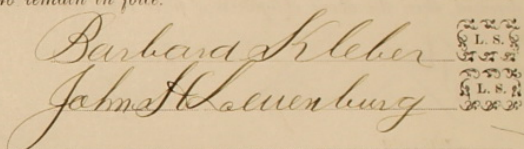 to remain in force.
Barbara Kleber L. S.
John H Louenburg L. S.